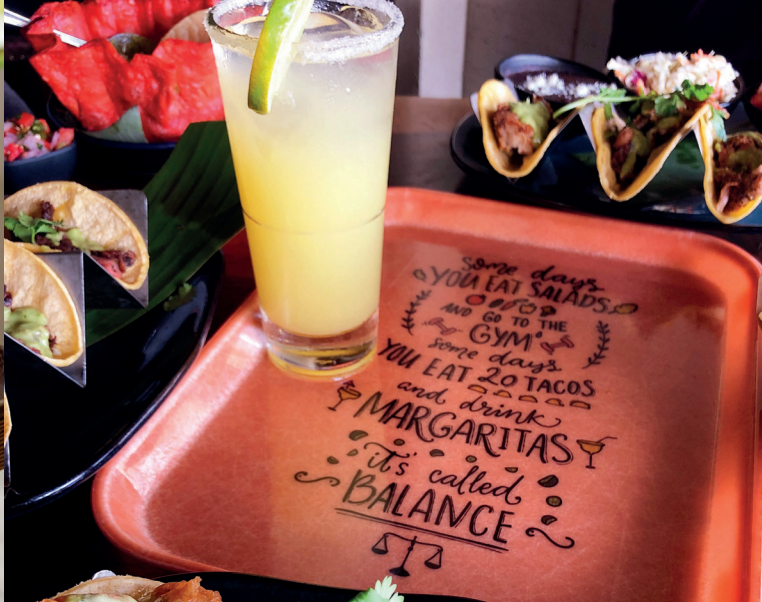 some days
YOU EAT SALADS
AND GO TO THE
GYM
some days
YOU EAT 20 TACOS
and drink
MARGARITAS
it's called
BALANCE